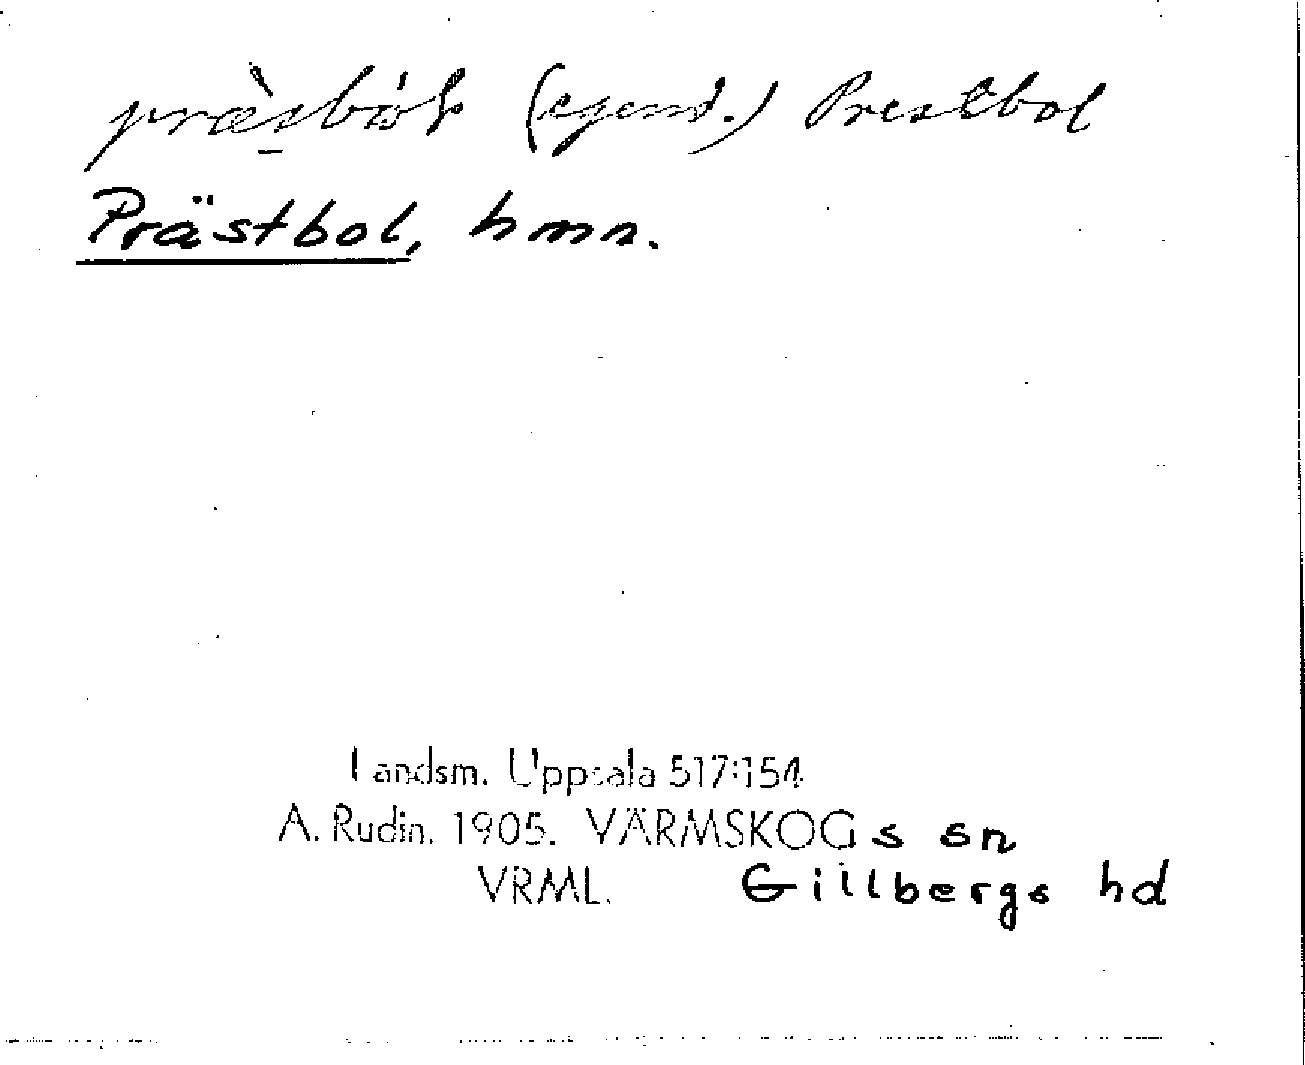 præ̀sbóɫ (egend.) Prestbol
Prästbol, hmn.
Landsm. Uppsala 517:154
A. Rudin. 1905. VÄRMSKOGs sn
VRML. Gillbergs hd